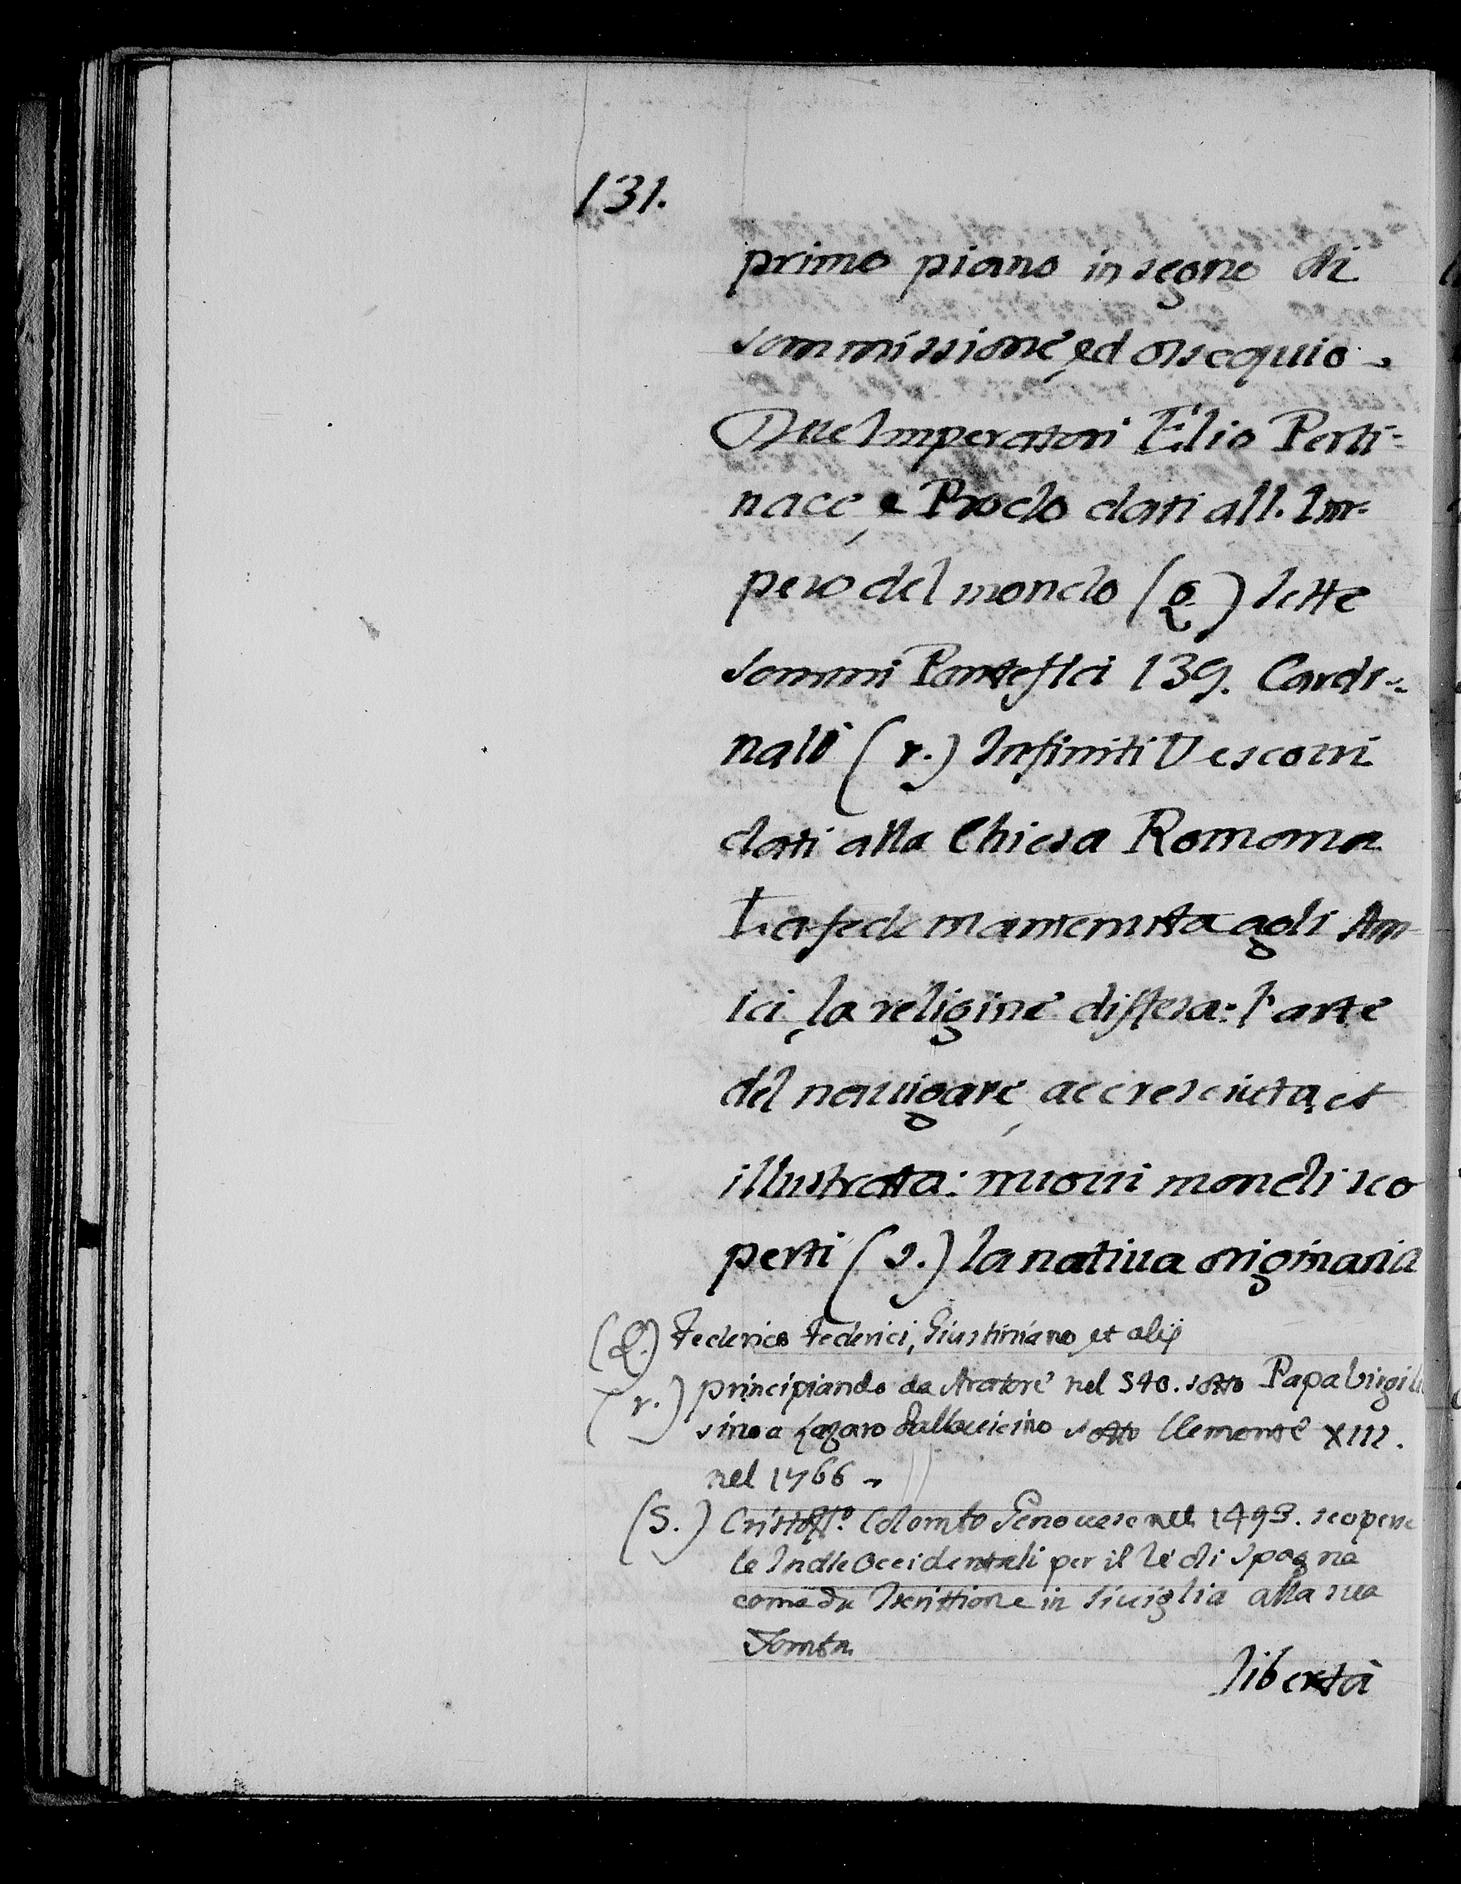 131.
primo piano in segno di
sommissione, ed ossequio.
Due Imperatori Elio Perti=
nace, e Proclo dati all. Im=
pero del mondo (Q) Sette
Sommi Pontefici 139. Cardi=
nali (r.) Infiniti Vescovi
dati alla Chiesa Romana
La fede mantenuta agli Am=
ici, la religine diffesa: l'arte
del nauigare, accresciuta, et
illustrata: nuoui mondi sco
perti (s.) la natiua originaria
(Q.) Federico Federici, Giustiniano et alij
(r.) principiando da Aratore nel 540. sotto Papa Virgili
sino a Lazaro Pallauicino sotto Clemente XIII.
nel 1766
(S.) Cristoff.o Colombo Genouese nel 1493. scoperse
le Indie Occidentali per il Rè di Spagna
come da Iscrittione in Siuiglia alla sua
Tomba
libertà